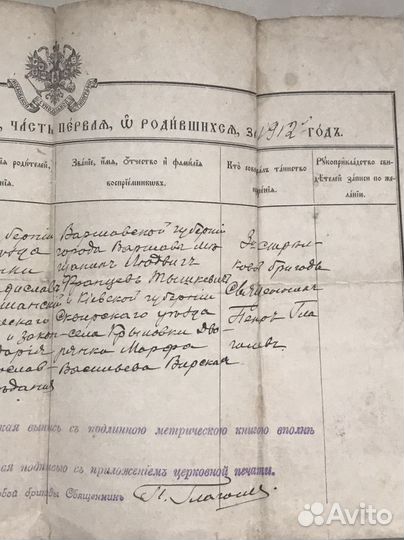 , ча́сть пе́рвая, ѿ роди́вшихся, за 1912 годъ.
родителей,
Званіе, имя, отчество и фамилія воспріемниковъ.
Кто совершалъ таинство крещенія.
Рукоприкладство свидѣтелей записи по желанію.
Варшавской губерніи
города Варшавы мѣ
щанинъ Людвигъ
Францевъ Тышкевичъ
и Кіевской губерніи
Сквирскаго уѣзда
села Крыловки Дво
рянка Марфа
Васильева Вирская
бригады
Священникъ
Петръ Гла
голевъ
губерніи
уѣзда
кая выпись съ подлинною метрическою книгою вполнѣ
ся подписью съ приложеніемъ церковной печати.
вой бригады Священникъ П. Глаголевъ
Avito